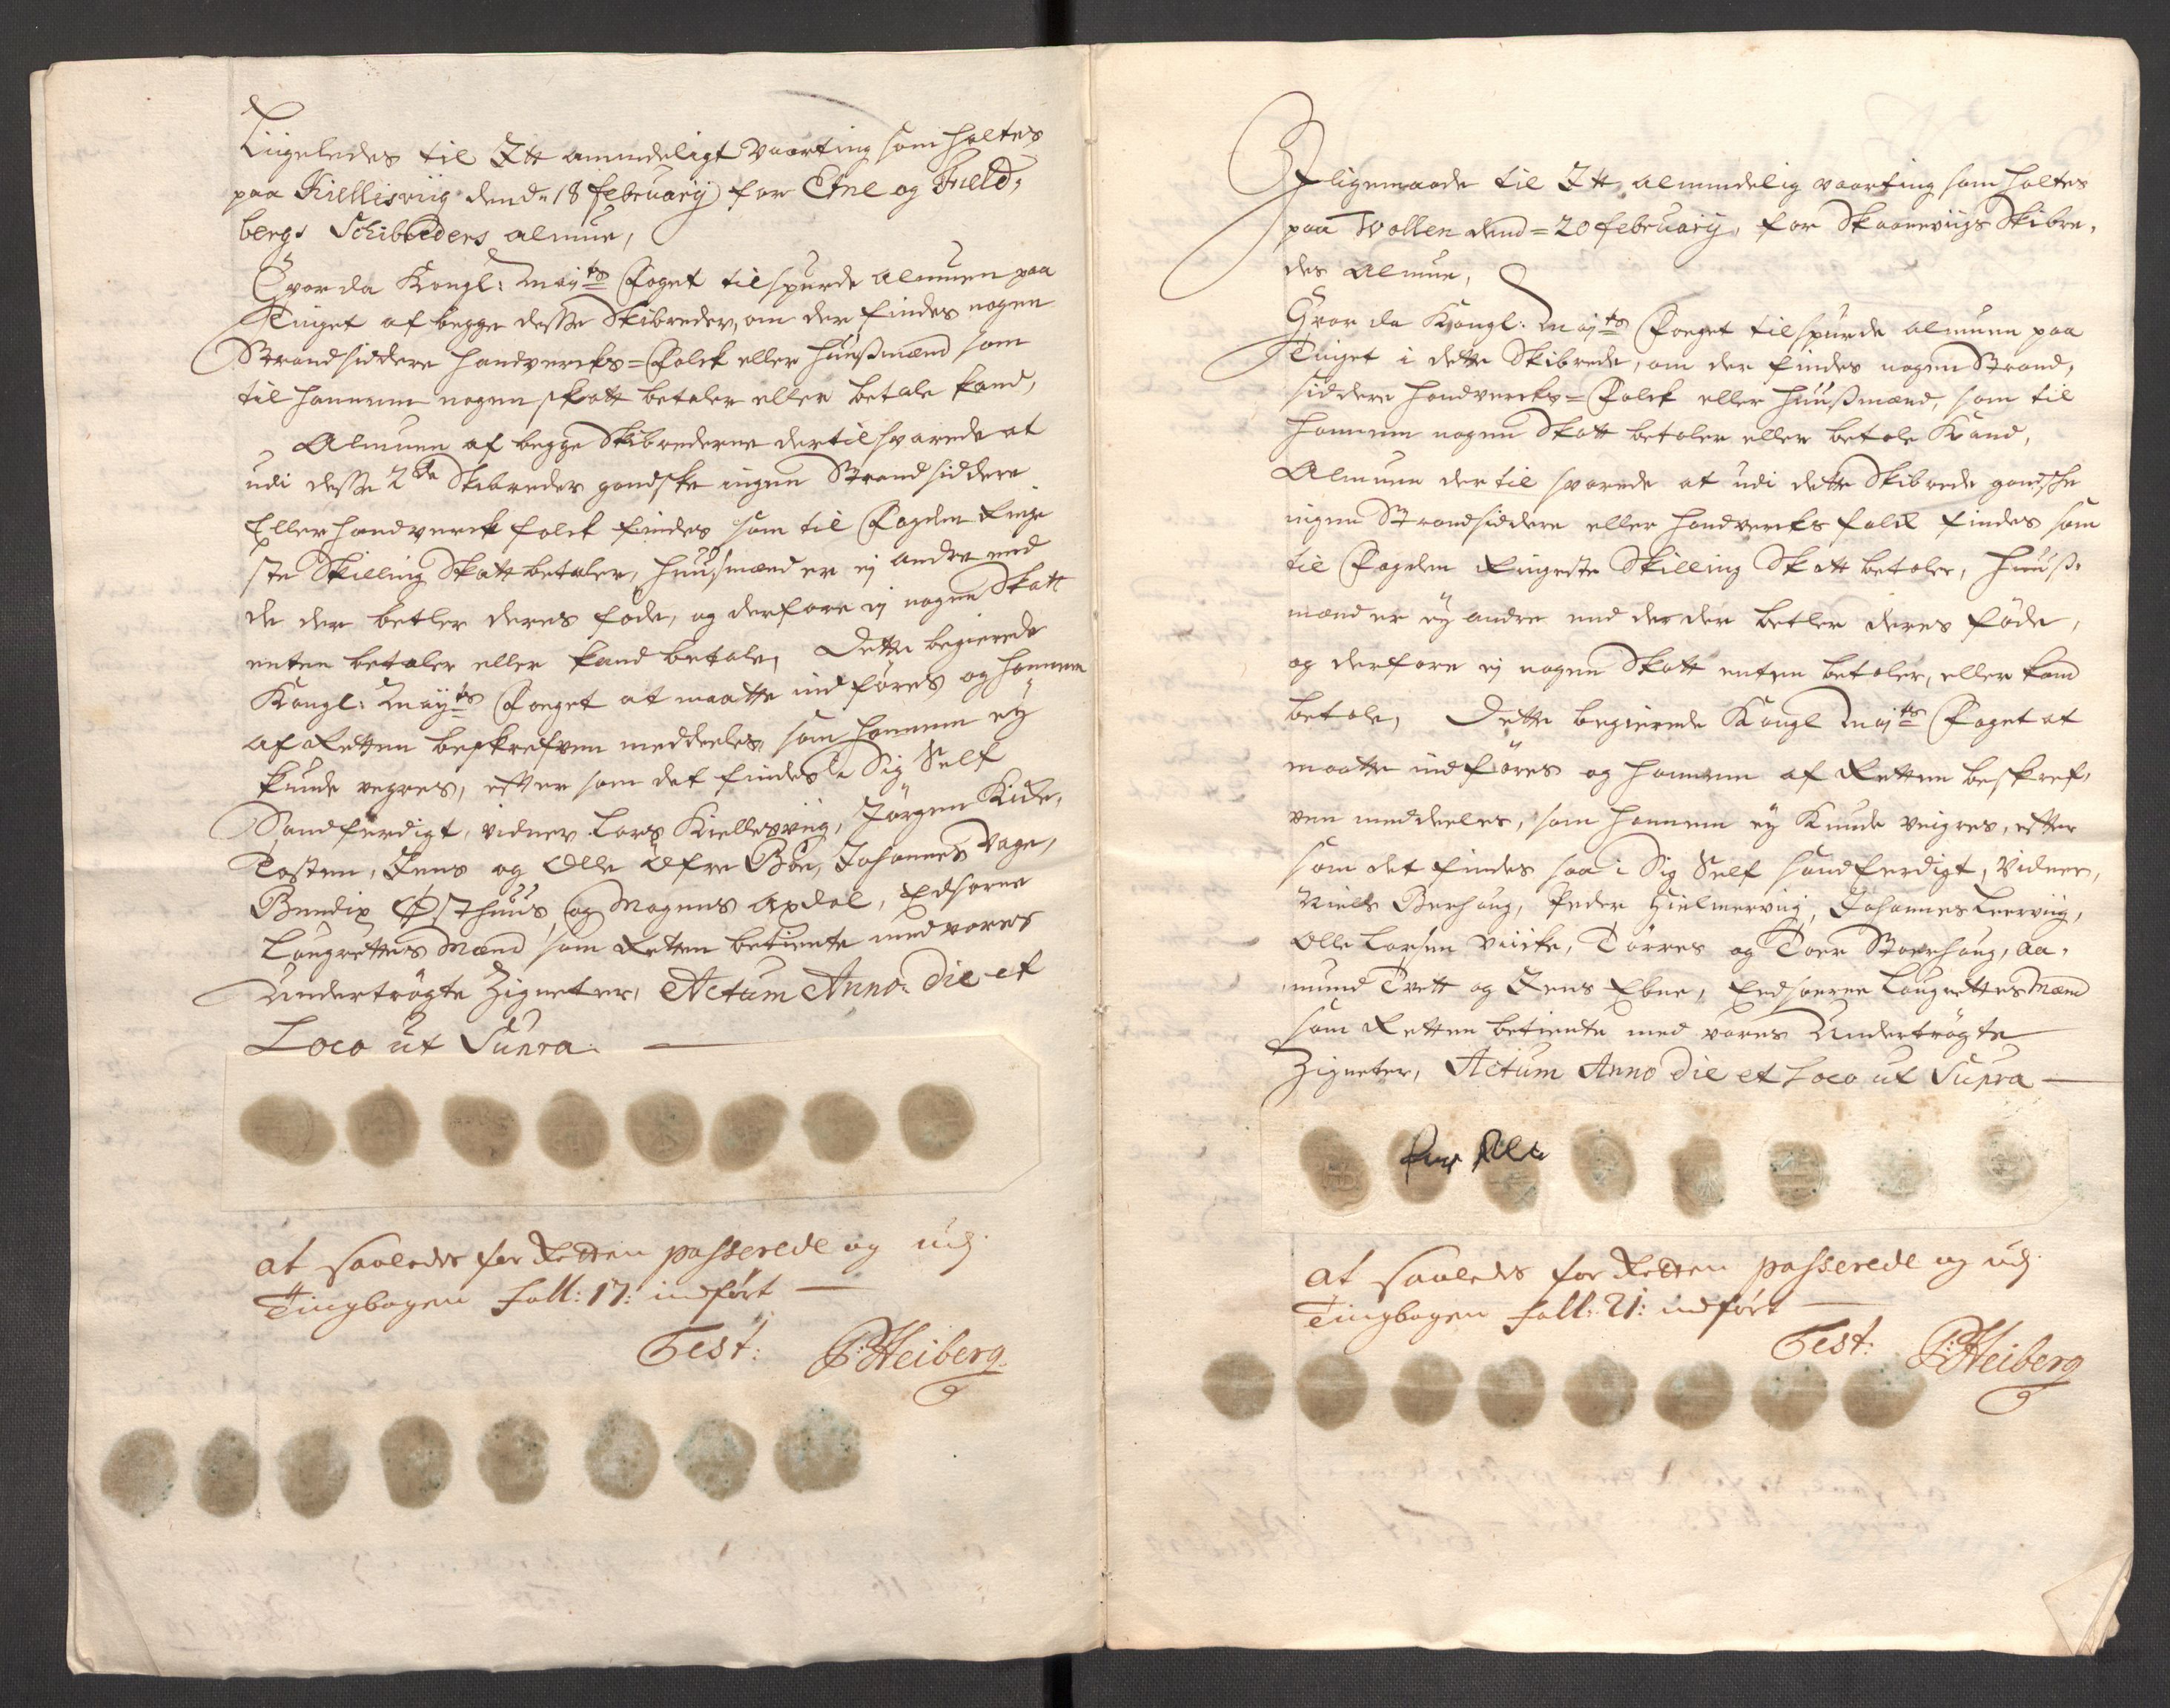 Liigeledes til Ett ammindeligt Vaarting som holtes
paa Kiellesviig dend= 18 february for Etne og Field,
bergs Schibreders almue,
Hvor da Kongl: May:ts Foget tilspurde almuen paa
Tinget af begge desse Skibreder, om der findes nogen
Strandsiddere handvercks=Folck eller huusmænd som
til hannem nogen skatt betaler eller betale kand,
Almuen af begge Skibrederne dertil svarede at
udi desse 2de Skibreder gandske ingen Strandsiddere
Eller handverck folck findes som til Fogden Ringe
ste Skilling Skatt betaler, huusmænd er ej andre end
de der betler deres føde, og derfore ej nogen Skatt
enten betaler eller kand betale, Dette begierede
Kongl: May:ts Foeget at maatte indføres og hannem
af Retten beskrefven meddeeles, som hannem ey
kunde vegres, efter som det findes i Sig Self
Sandferdigt, vidner Lars Kiellesviig, Jørgen
Tosten, Jens og Olle Øfre Bøe, Johannes Vage,
Bendix Østhuus og Magnus Axdal, Edsorne
Laugrettes Mænd som Retten betiente med vores
Undertrøgte Zigneter, Actum Anno: Die et
Loco ut Supra.
at saaledes for Retten passerede og udj
Tingbogen foll: 17: indført
Test: P: Heiberg
J ligemaade til Ett almindelig vaarting som holtes
paa Wollen dend= 20 february, for Skaaneviigs Skibre,
des Almue,
Hvor da Kongl: May:ts Foeget tilspurde almuen paa
Tinget i dette Skibrede, om der findes nogen Strand,
siddere handvercks=Folck eller huusmænd, som til
hannem nogen Skatt betaler eller betale Kand,
Almuen der til svarede at udi dette Skibrede gandsche
ingen Strandsiddere eller handvercks folck findes som
til Fogden Ringeste Skilling Skatt betaler, huus,
mænd er ey andre end de der betler deres føde,
og derfore ej nogen Skatt enten betaler, eller kand
betale, Dette begierede Kongl May:ts Foget at
maatte indføres og hannem af Retten beskref,
ven meddeeles, som hannem ey Kunde veigres, efter
som det findes saa i Sig Self sandferdigt, Vidner,
Niels Berhaug, Peder Hielmerviig, Johannes Leerviig,
Olle Larsen Viicke, Tørres og Toer Stoerhaug, Aa,
mund Tvett og Jens Ebne, Eedsorne Laugrettes Mænd
som Retten betiente med vores Undertrøgte
Zigneter, Actum Anno Die et Loco ut Supra
at saaledes for Retten passerede og udj
Tingbogen foll: 21: indført
Test: P: Heiberg